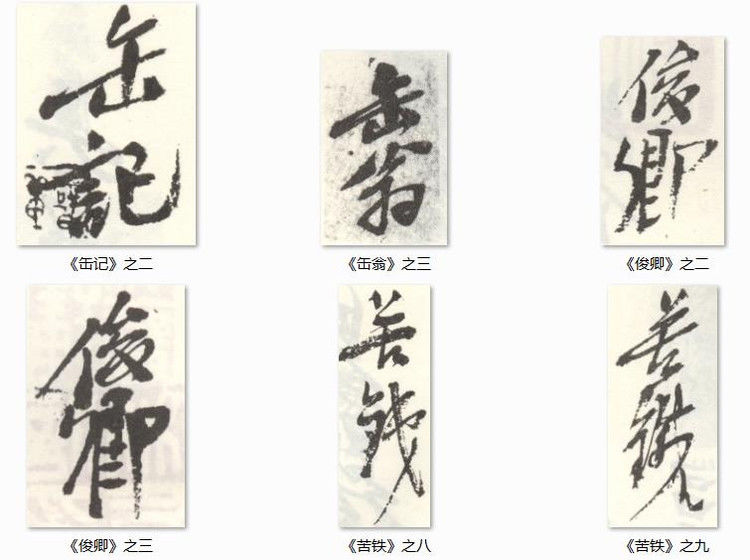 缶記
缶翁
俊卿
《缶记》之二
《缶翁》之三
《俊卿》之二
俊卿
苦鉄
苦鐵
《俊卿》之三
《苦铁》之八
《苦铁》之九